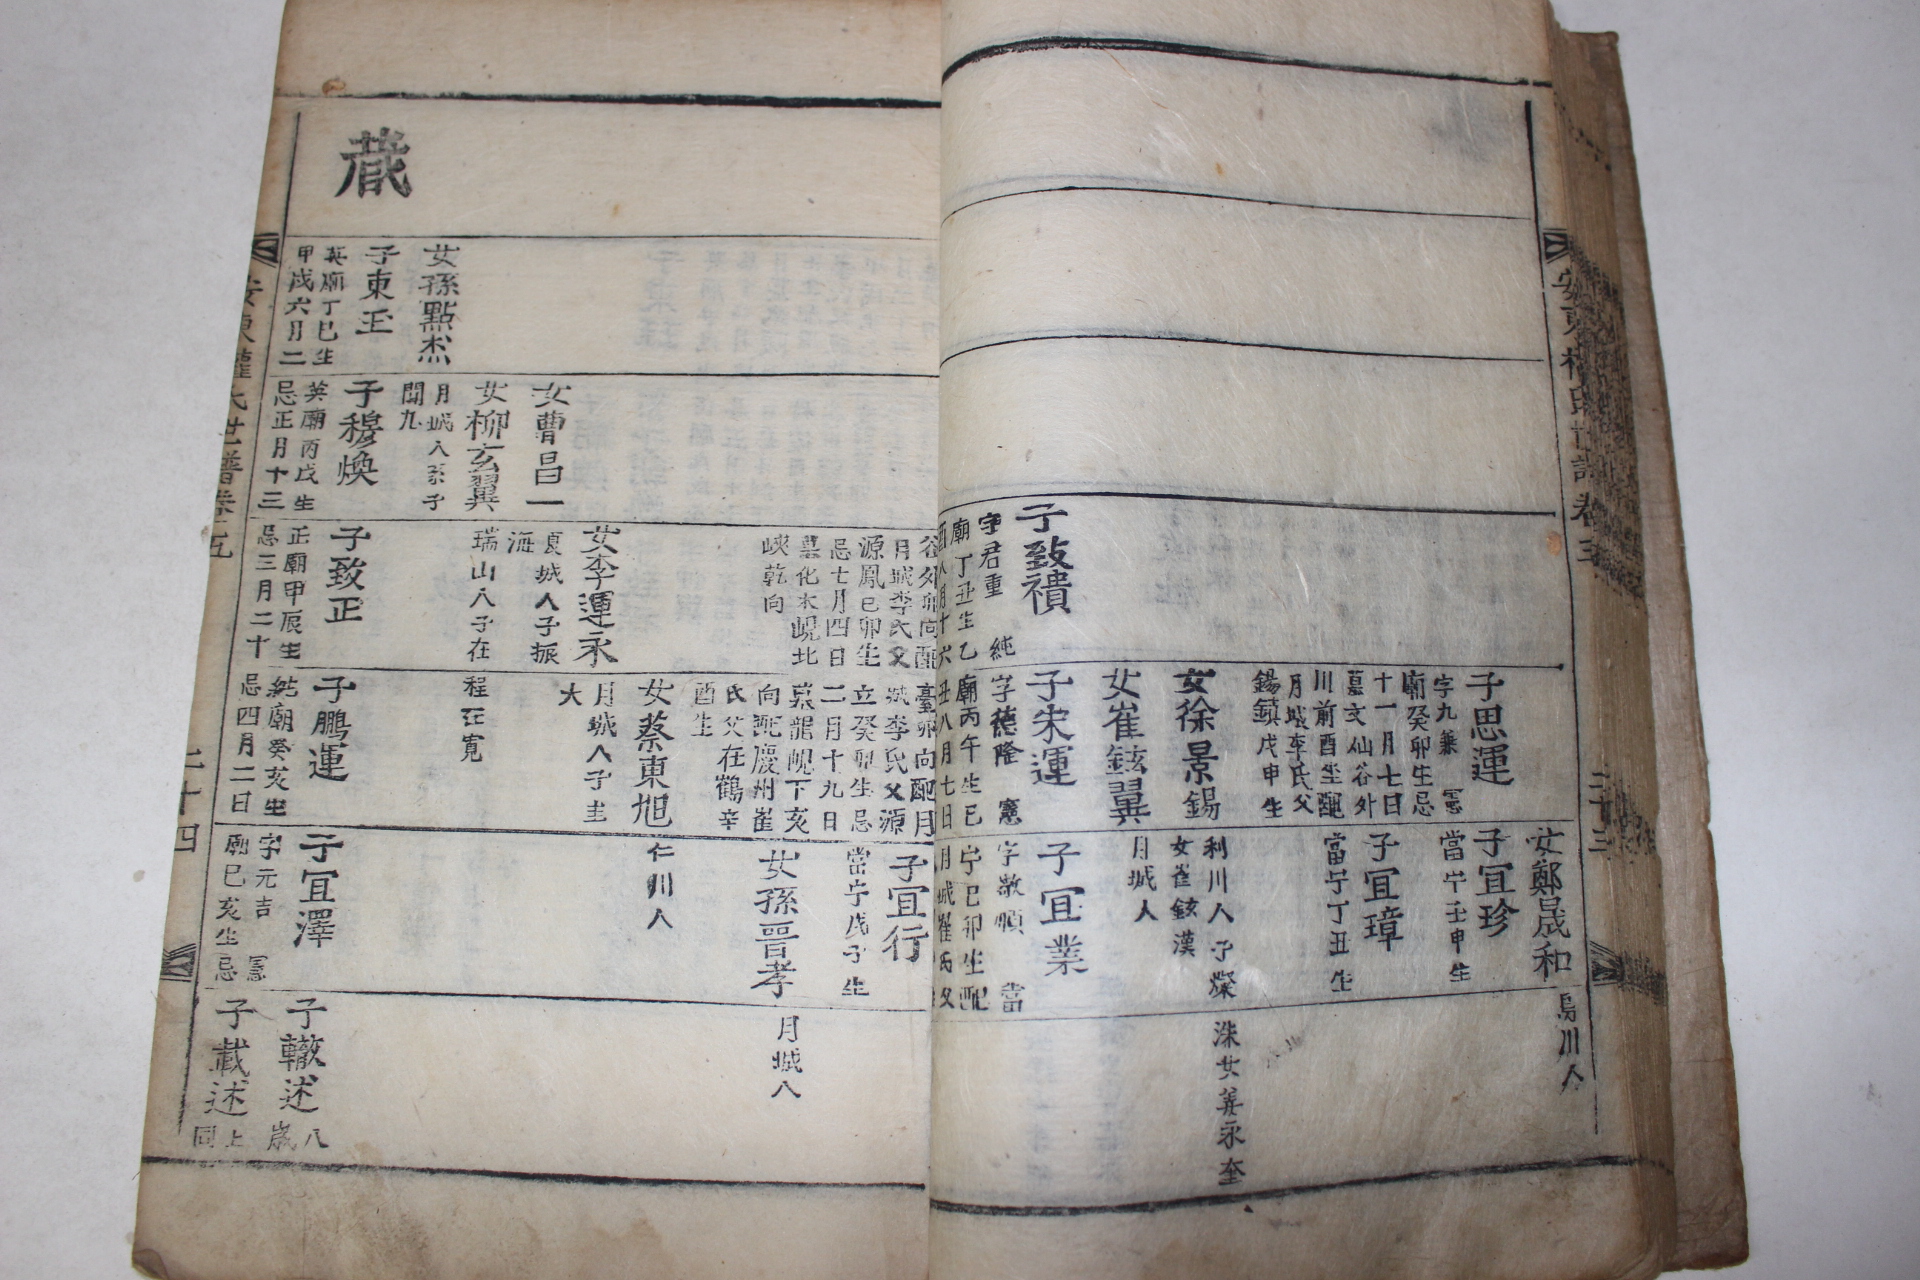 安東權氏世譜卷五
二十三
子致禶
字君重 純
廟丁丑生乙
酉八月十六
子思運
字九兼 憲
廟癸卯生忌
十一月七日
墓文仙谷外
川前酉坐配
月城李氏父
錫鎮戊申生
女徐景錫
女崔鉉翼
子宋運
字德隆 憲
廟丙午生己
丑八月七日
女鄭晟和
子宜珍
當宁壬申生
子宜璋
當宁丁丑生
利川人子燦
女崔鉉漢
月城人
子宜業
字敬順 當
宁己卯生配
月城崔氏父
烏川人
洙女姜永奎
谷外卯向配
月城李氏父
源鳳己卯生
忌七月四日
墓化木峴北
峽乾向
女李運永
夏城人子振
海
瑞山人子在
子致正
正廟甲辰生
忌三月二十
臺卯向配月
城李氏父源
立癸卯生忌
二月十九日
墓龍峴下亥
向配慶州崔
氏父在鶴辛
酉生
女蔡東旭
月城人子圭
大
程在寬
子鵬運
純廟癸亥生
忌四月二日
子宜行
當宁戊子生
女孫晋孝
仁川人
子宜澤
字元吉 憲
廟己亥生忌
月城人
子轍述八
歲
子載述上
同
女曹昌一
女柳玄翼
月城人系子
聞九
子穆煥
英廟丙戌生
忌正月十三
女孫點杰
子東玉
英廟丁巳生
甲戌六月二
藏
安東權氏世譜卷五
二十四